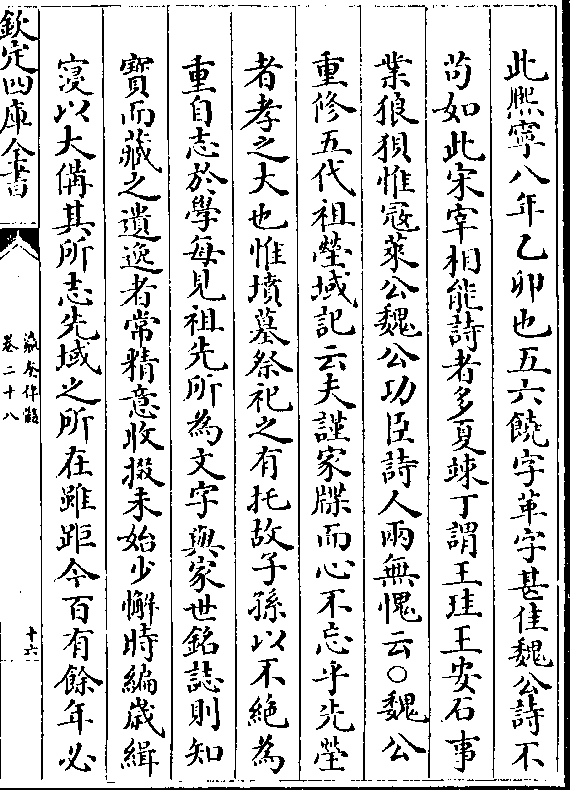 此熙寧八年乙卯也五六饒字革字甚佳魏公詩不
苟如此宋宰相能詩者多夏竦丁謂王珪王安石事
業狼狽惟冦萊公魏公功臣詩人兩無愧云○魏公
重修五代祖塋域記云夫謹家牒而心不忘乎先塋
者孝之大也惟墳墓祭祀之有托故子孫以不絶為
重自志於學每見祖先所為文字與家世銘誌則知
寶而藏之遺逸者常精意收掇未始少懈時編歳緝
寖以大備其所志先域之所在雖距今百有餘年必
欽定四庫全書
卷二十八
十六